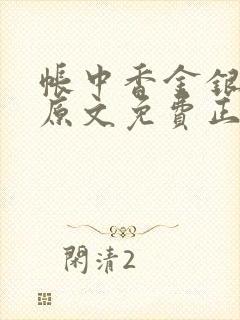 帳中香金銀
原文免費正
閑清2